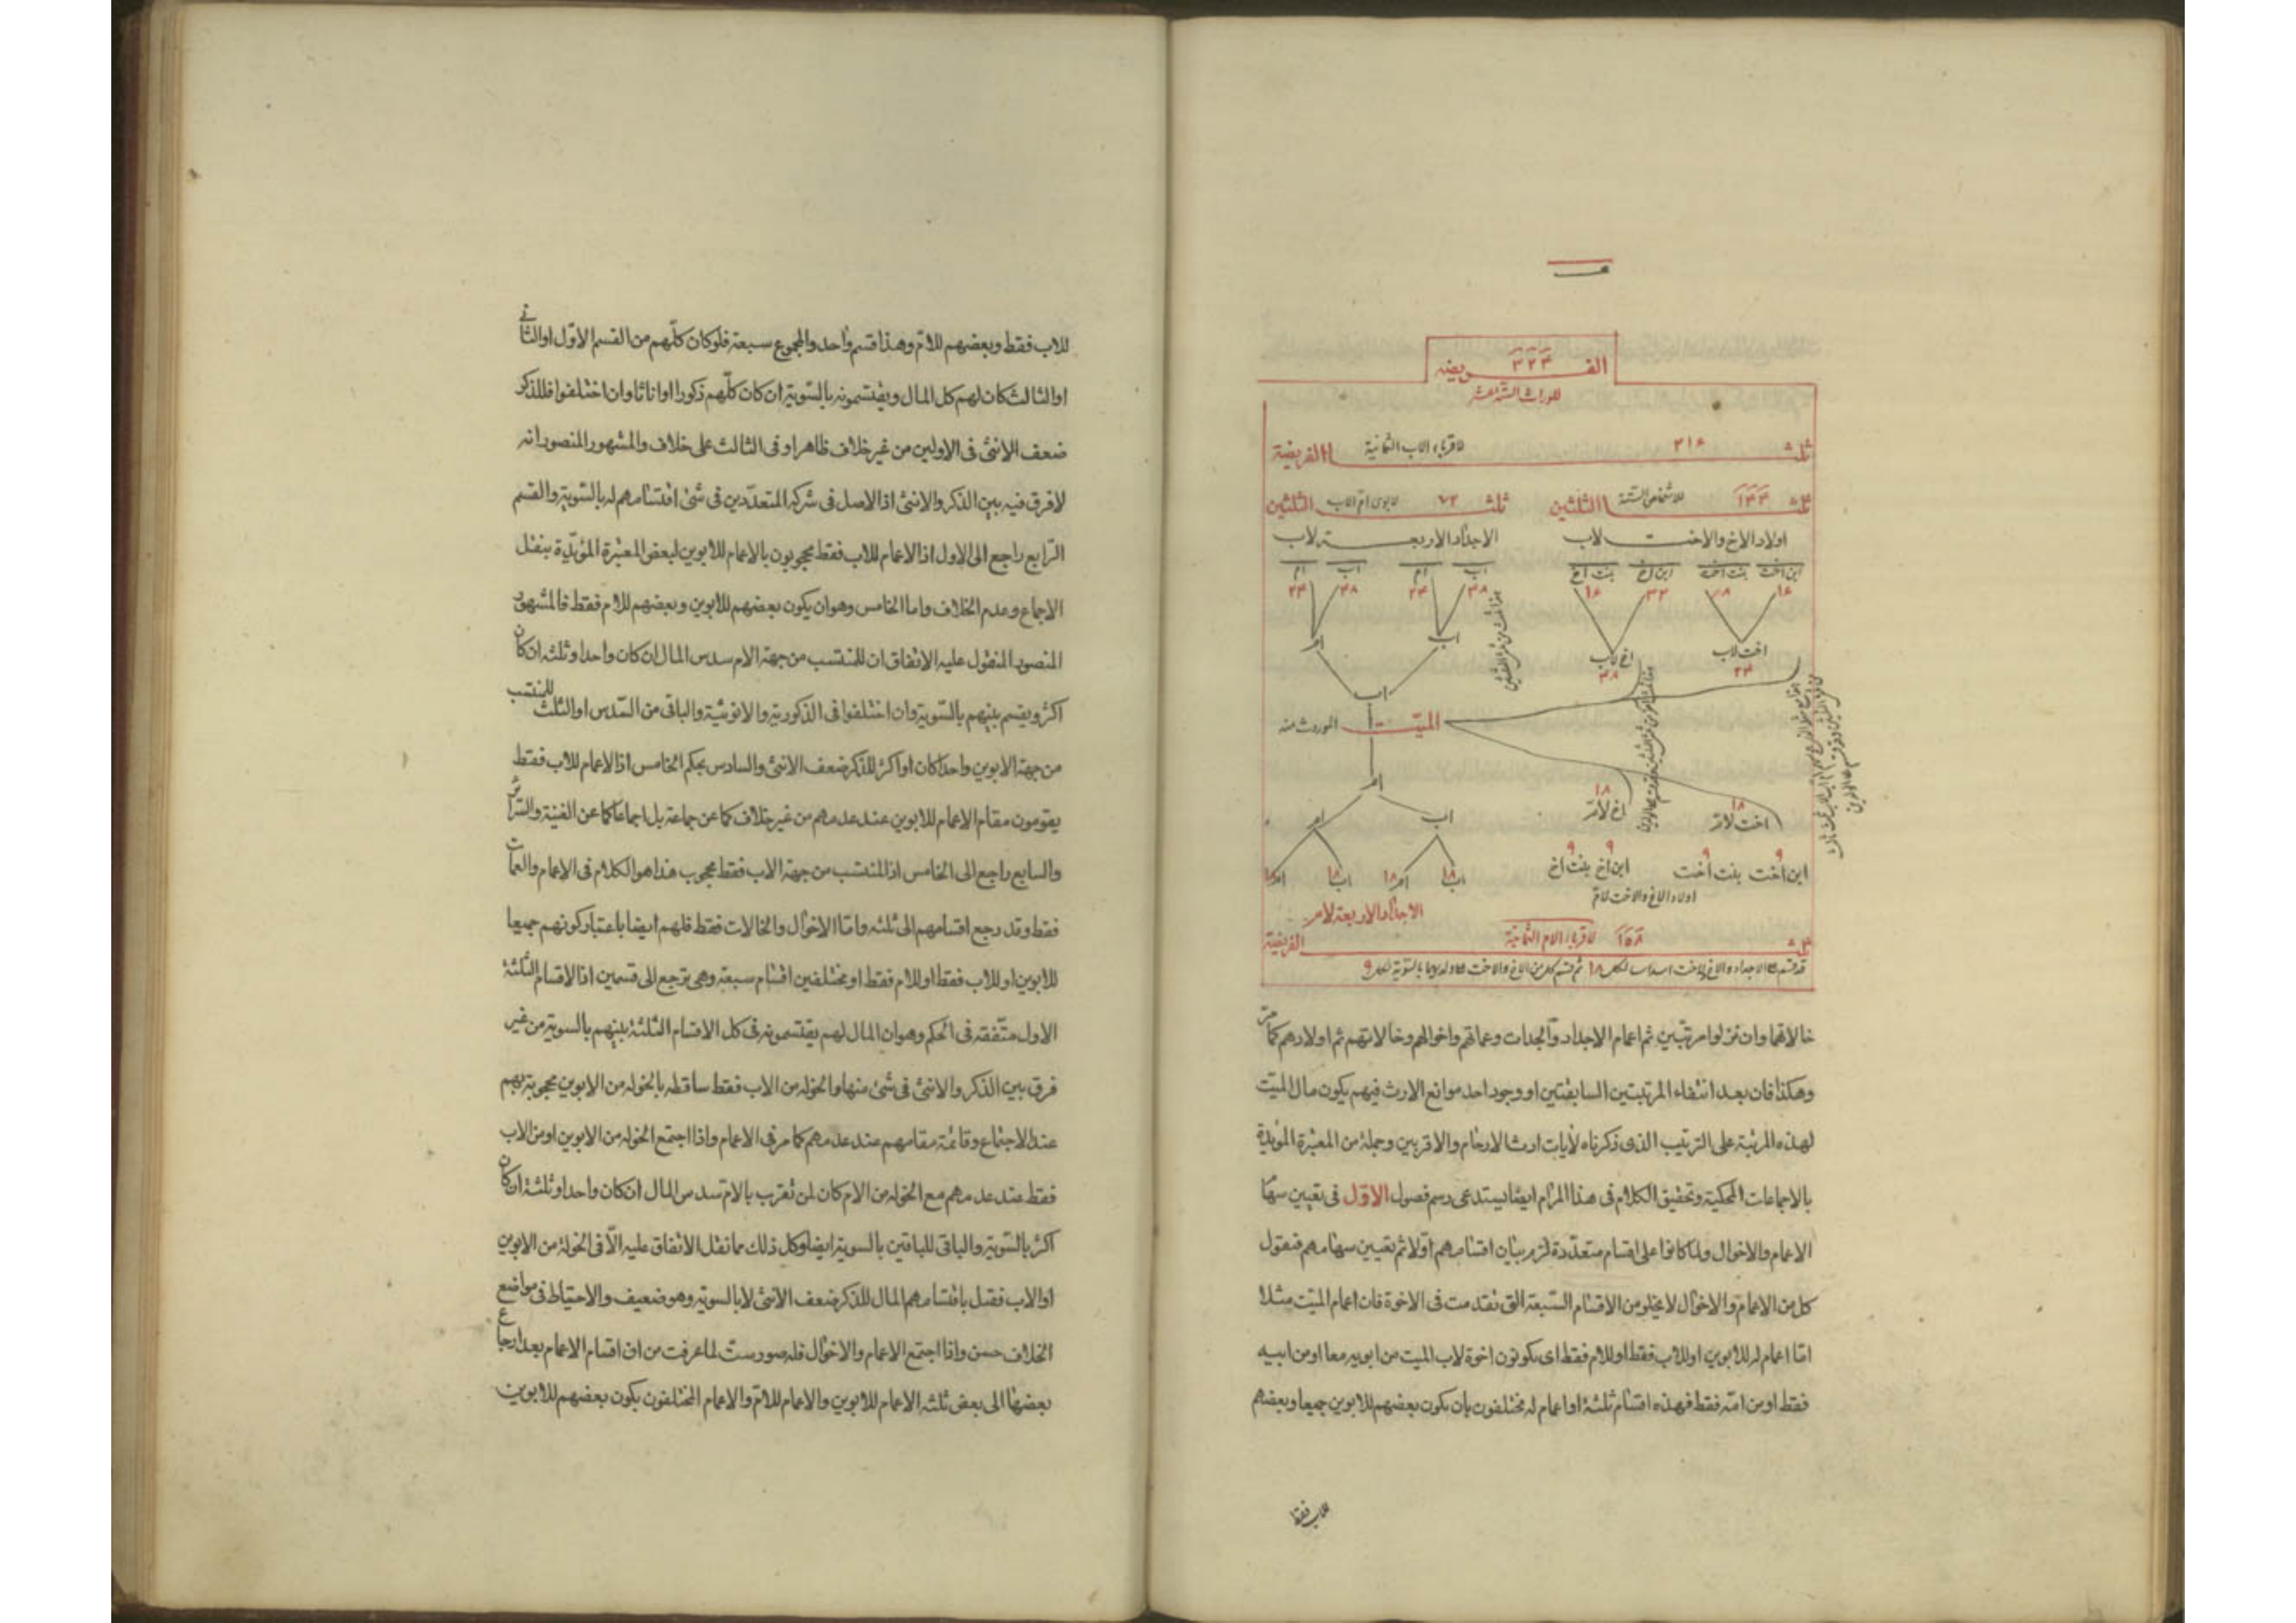 الفريضه ٣٢٤
للوراث الستة عشر
ثلثا ٢١٦ لاقرباء الاب الثمانية الفريضة
ثلثا ١٤٤ للاشخاص الستة الثلثين
ثلث ٧٢ لابوى ام الاب الثلثين
اولاد الاخ والاخت لاب
الاجداد الاربعة لاب
ابن اخت بنت اخت ابن اخ بنت اخ
اب ام اب ام
١٦ ٨ ٣٢ ١٦
٤٨ ٢٤ ٤٨ ٢٤
اخت لاب اخ لاب
٢٤ ٤٨
اب ام
اب
الميت الموروث منه
ام
١٨ ١٨
اخت لام اخ لام
اب ام
٩ ٩ ٩ ٩
ابن اخت بنت اخت ابن اخ بنت اخ
اب ١٨ ام ١٨ اب ١٨ ام ١٨
اولاد الاخ والاخت للام
الاجداد الاربعة لام
ثلث ١٥٨ لاقرباء الام الثمانية الفريضة
خالاتهما وان نزلوا مرتبين ثم اعمام الاجداد والجدات وعماتهم واخوالهم وخالاتهم ثم اولادهم كما مر
وهكذا فان بعد انتفاء المرتبتين السابقتين او وجود احد موانع الارث فيهم يكون مال الميت
لهذه المرتبة على الترتيب الذى ذكرناه لآيات ارث الارحام والاقربين وجملة من المعتبرة المؤيدة
بالاجماعات المحكية وتحقيق الكلام فى هذا المرام ايضا يستدعى رسم فصول الاول فى تعيين سهام
الاعمام والاخوال ولما كانوا على اقسام متعددة لزم بيان اقسامهم اولا ثم تعيين سهامهم فنقول
كل من الاعمام والاخوال لا يخلو من الاقسام السبعة التى تقدمت فى الاخوة فان اعمام الميت مثلا
اما اعمام له للابوين او للاب فقط او للام فقط اى يكونون اخوة لاب الميت من ابويه معا او من ابيه
فقط او من امه فقط فهذه اقسام ثلثة او اعمام له مختلفون بان يكون بعضهم للابوين جميعا وبعضهم
للاب فقط
للاب فقط وبعضهم للام وهذا قسم واحد والمجموع سبعة فلو كان كلهم من القسم الاول او الثانى
او الثالث كان لهم كل المال ويقتسمونه بالسوية ان كان كلهم ذكورا او اناثا وان اختلفوا فللذكر
ضعف الانثى فى الاولين من غير خلاف ظاهر او فى الثالث على خلاف والمشهور المنصور انه
لا فرق فيه بين الذكر والانثى اذ الاصل فى شركة المتعددين فى شئ اقتسامهم له بالسوية والقسم
الرابع راجع الى الاول اذ الاعمام للاب فقط محجوبون بالاعمام للابوين لبعض المعتبرة المؤيدة بنقل
الاجماع وعدم الخلاف واما الخامس وهو ان يكون بعضهم للابوين وبعضهم للام فقط فالمشهور
المنصور المنقول عليه الاتفاق ان للمنتسب من جهة الام سدس المال ان كان واحدا وثلثه ان كان
اكثر ويقسم بينهم بالسوية وان اختلفوا فى الذكورية والانوثية والباقى من السدس او الثلث للمنتسب
من جهة الابوين واحدا كان او اكثر للذكر ضعف الانثى والسادس بحكم الخامس اذ الاعمام للاب فقط
يقومون مقام الاعمام للابوين عند عدمهم من غير خلاف كما عن جماعة بل اجماعا كما عن الغنية والسرائر
والسابع راجع الى الخامس اذ المنتسب من جهة الاب فقط محجوب هذا هو الكلام فى الاعمام والعمات
فقط وقد رجع اقسامهم الى ثلثه واما الاخوال والخالات فقط فلهم ايضا باعتبار كونهم جميعا
للابوين او للاب فقط او للام فقط او مختلفين اقسام سبعة وهى ترجع الى قسمين اذ الاقسام الثلثة
الاول متفقه فى الحكم وهو ان المال لهم يقتسمونه فى كل الاقسام الثلثة بينهم بالسوية من غير
فرق بين الذكر والانثى فى شئ منها والخوله من الاب فقط ساقطه بالخوله من الابوين محجوبة بهم
عند الاجتماع وقائمة مقامهم عند عدمهم كما مر فى الاعمام واذا اجتمع الخوله من الابوين او من الاب
فقط عند عدمهم مع الخوله من الام كان لمن تقرب بالام سدس المال ان كان واحدا وثلثة ان كان
اكثر بالسوية والباقى للباقين بالسوية ايضا وكل ذلك مما نقل الاتفاق عليه الا فى الخولة من الابوين
او الاب فقيل باقتسامهم المال للذكر ضعف الانثى لا بالسوية وهو ضعيف والاحتياط فى مواضع
الخلاف حسن واذا اجتمع الاعمام والاخوال فله صور ست لما عرفت من ان اقسام الاعمام بعد ارجاع
بعضها الى بعض ثلثه الاعمام للابوين والاعمام للام والاعمام المختلفون بكون بعضهم للابوين